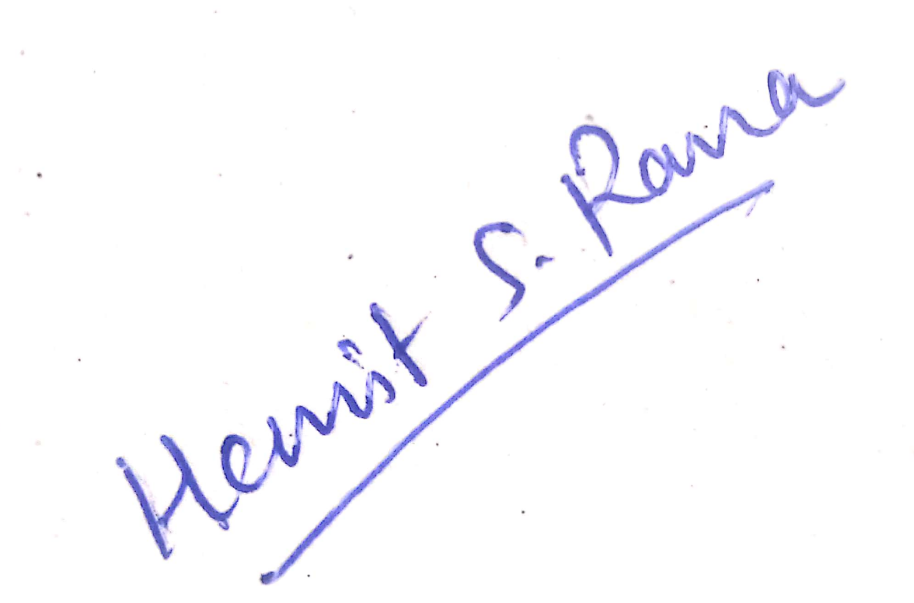 Hemist S. Rana